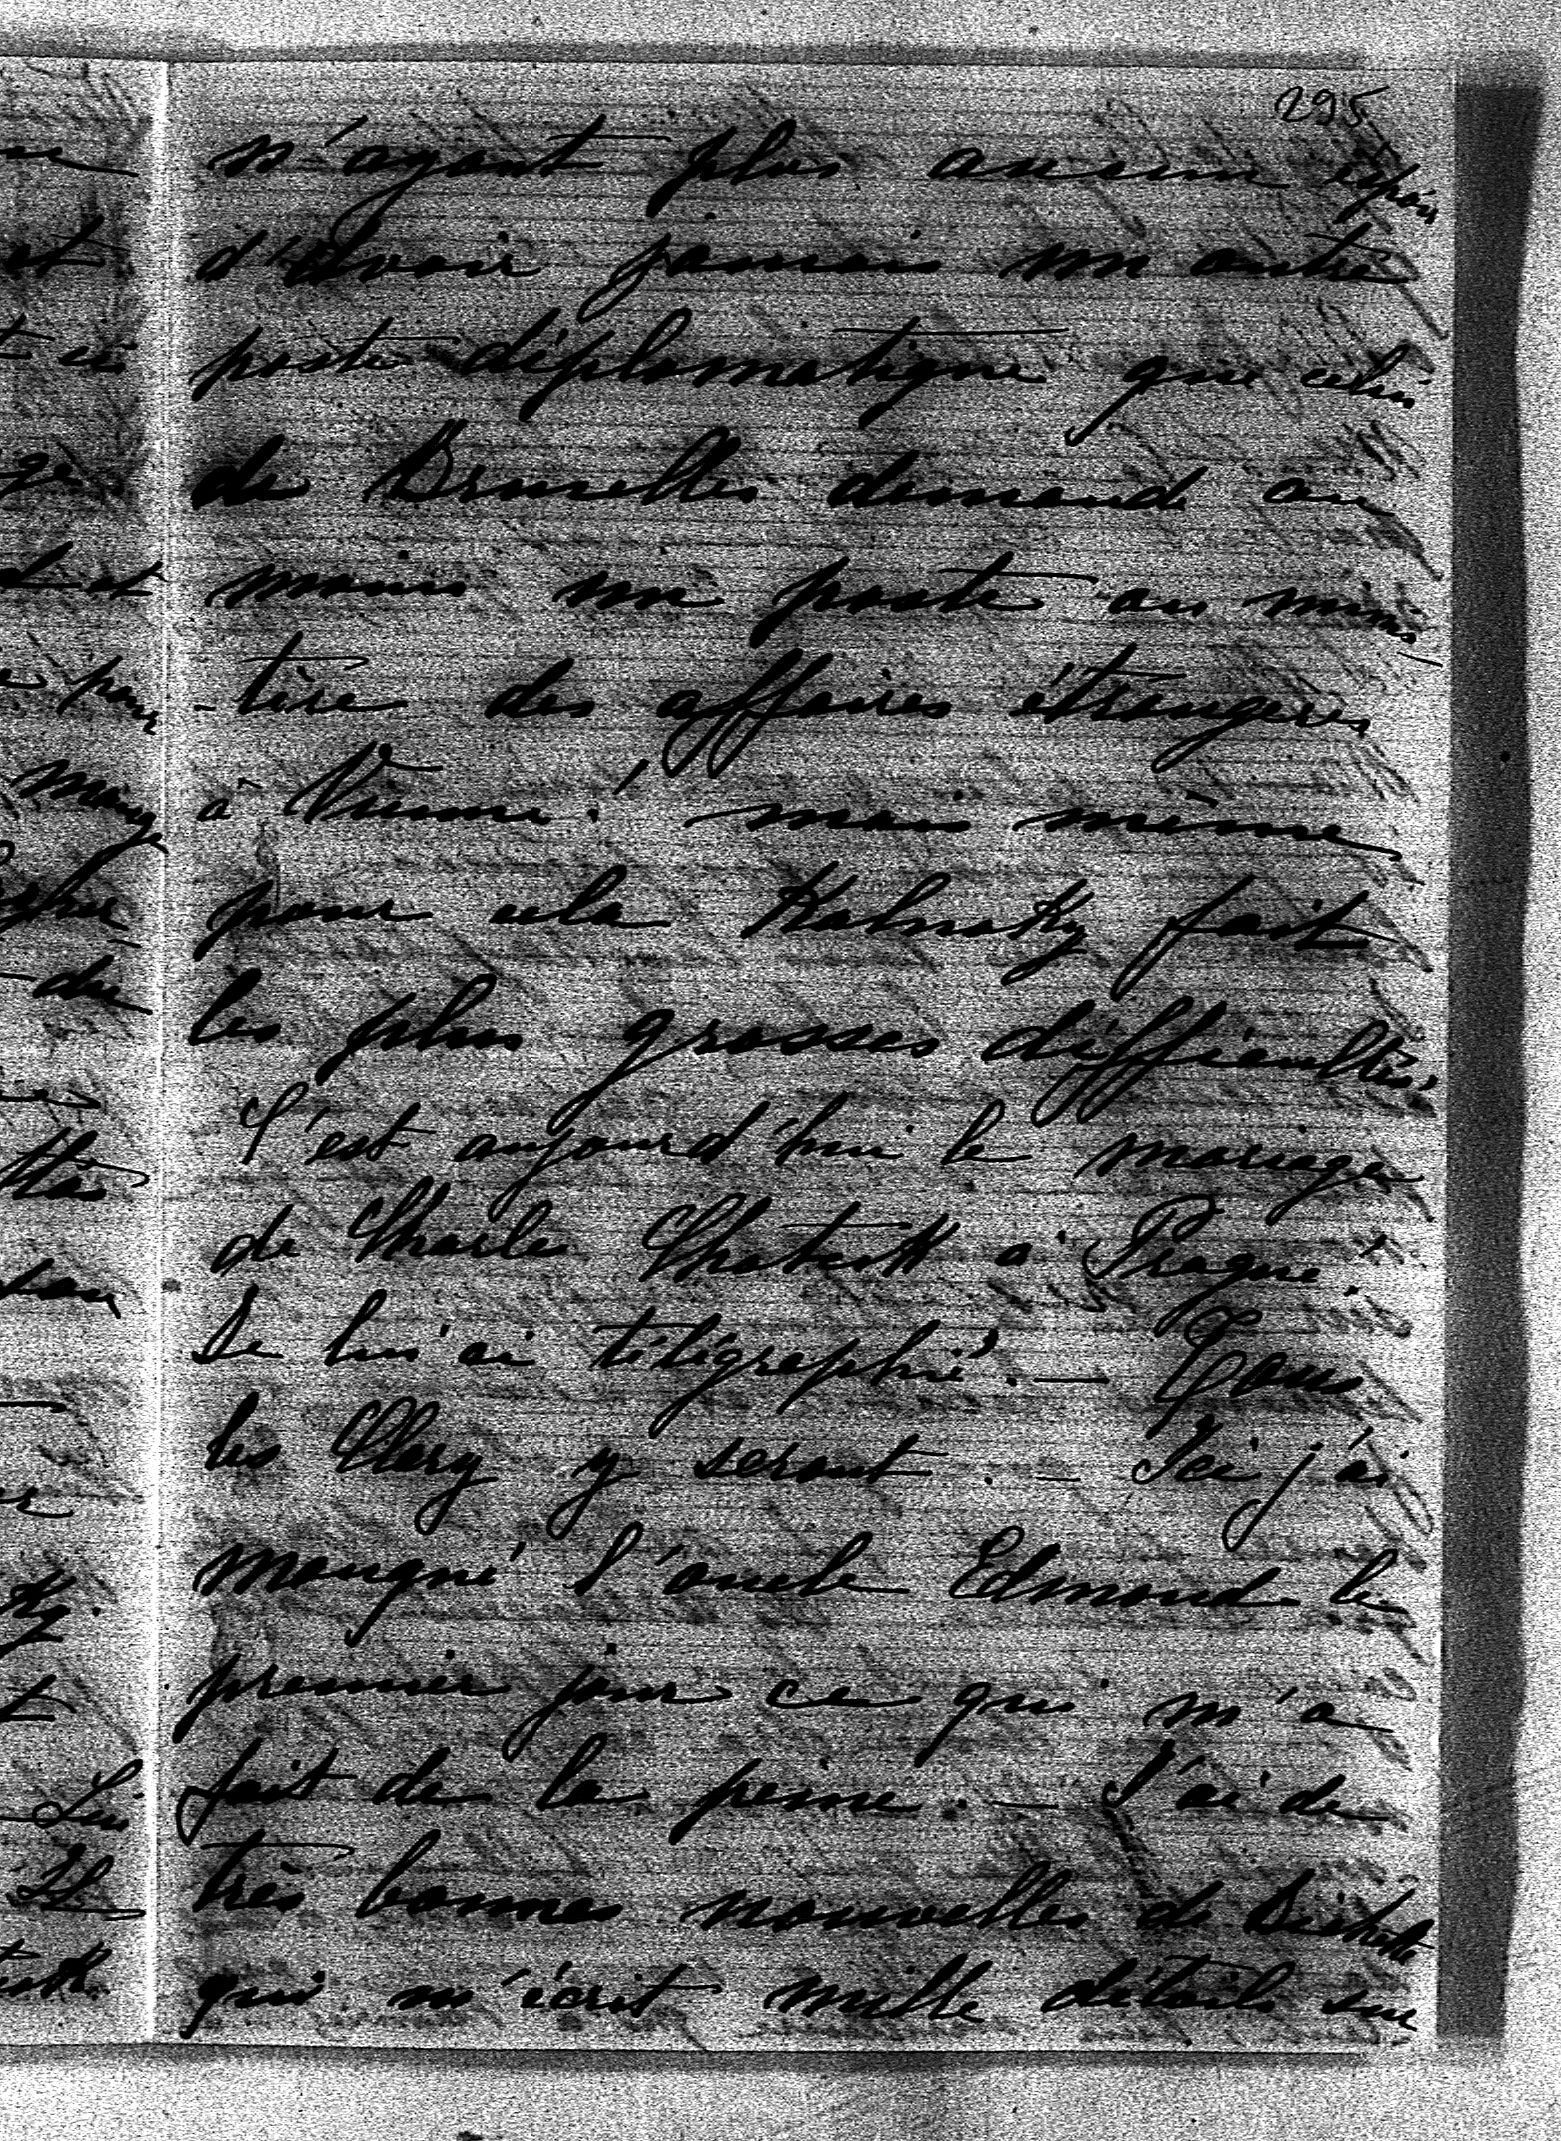 295
n'ayant plus aucun espoir
d'avoir jamais un autre
poste diplomatique que celui
de Bruxelles demande au
moins un poste au minis
-tère des affaires étrangères
à Vienne! mais même
pour cela Kalnoky fait
les plus grosses difficultés.
C'est aujourd'hui le mariage
de Charle Chotek à Prague.
Je lui ai télégraphié. — Tous
les Clary y seront. — Ici j'ai
manqué l'oncle Edmond le
premier jour ce qui m'a
fait de la peine. — J'ai de
très bonnes nouvelles de
qui m'écrit mille détails sur